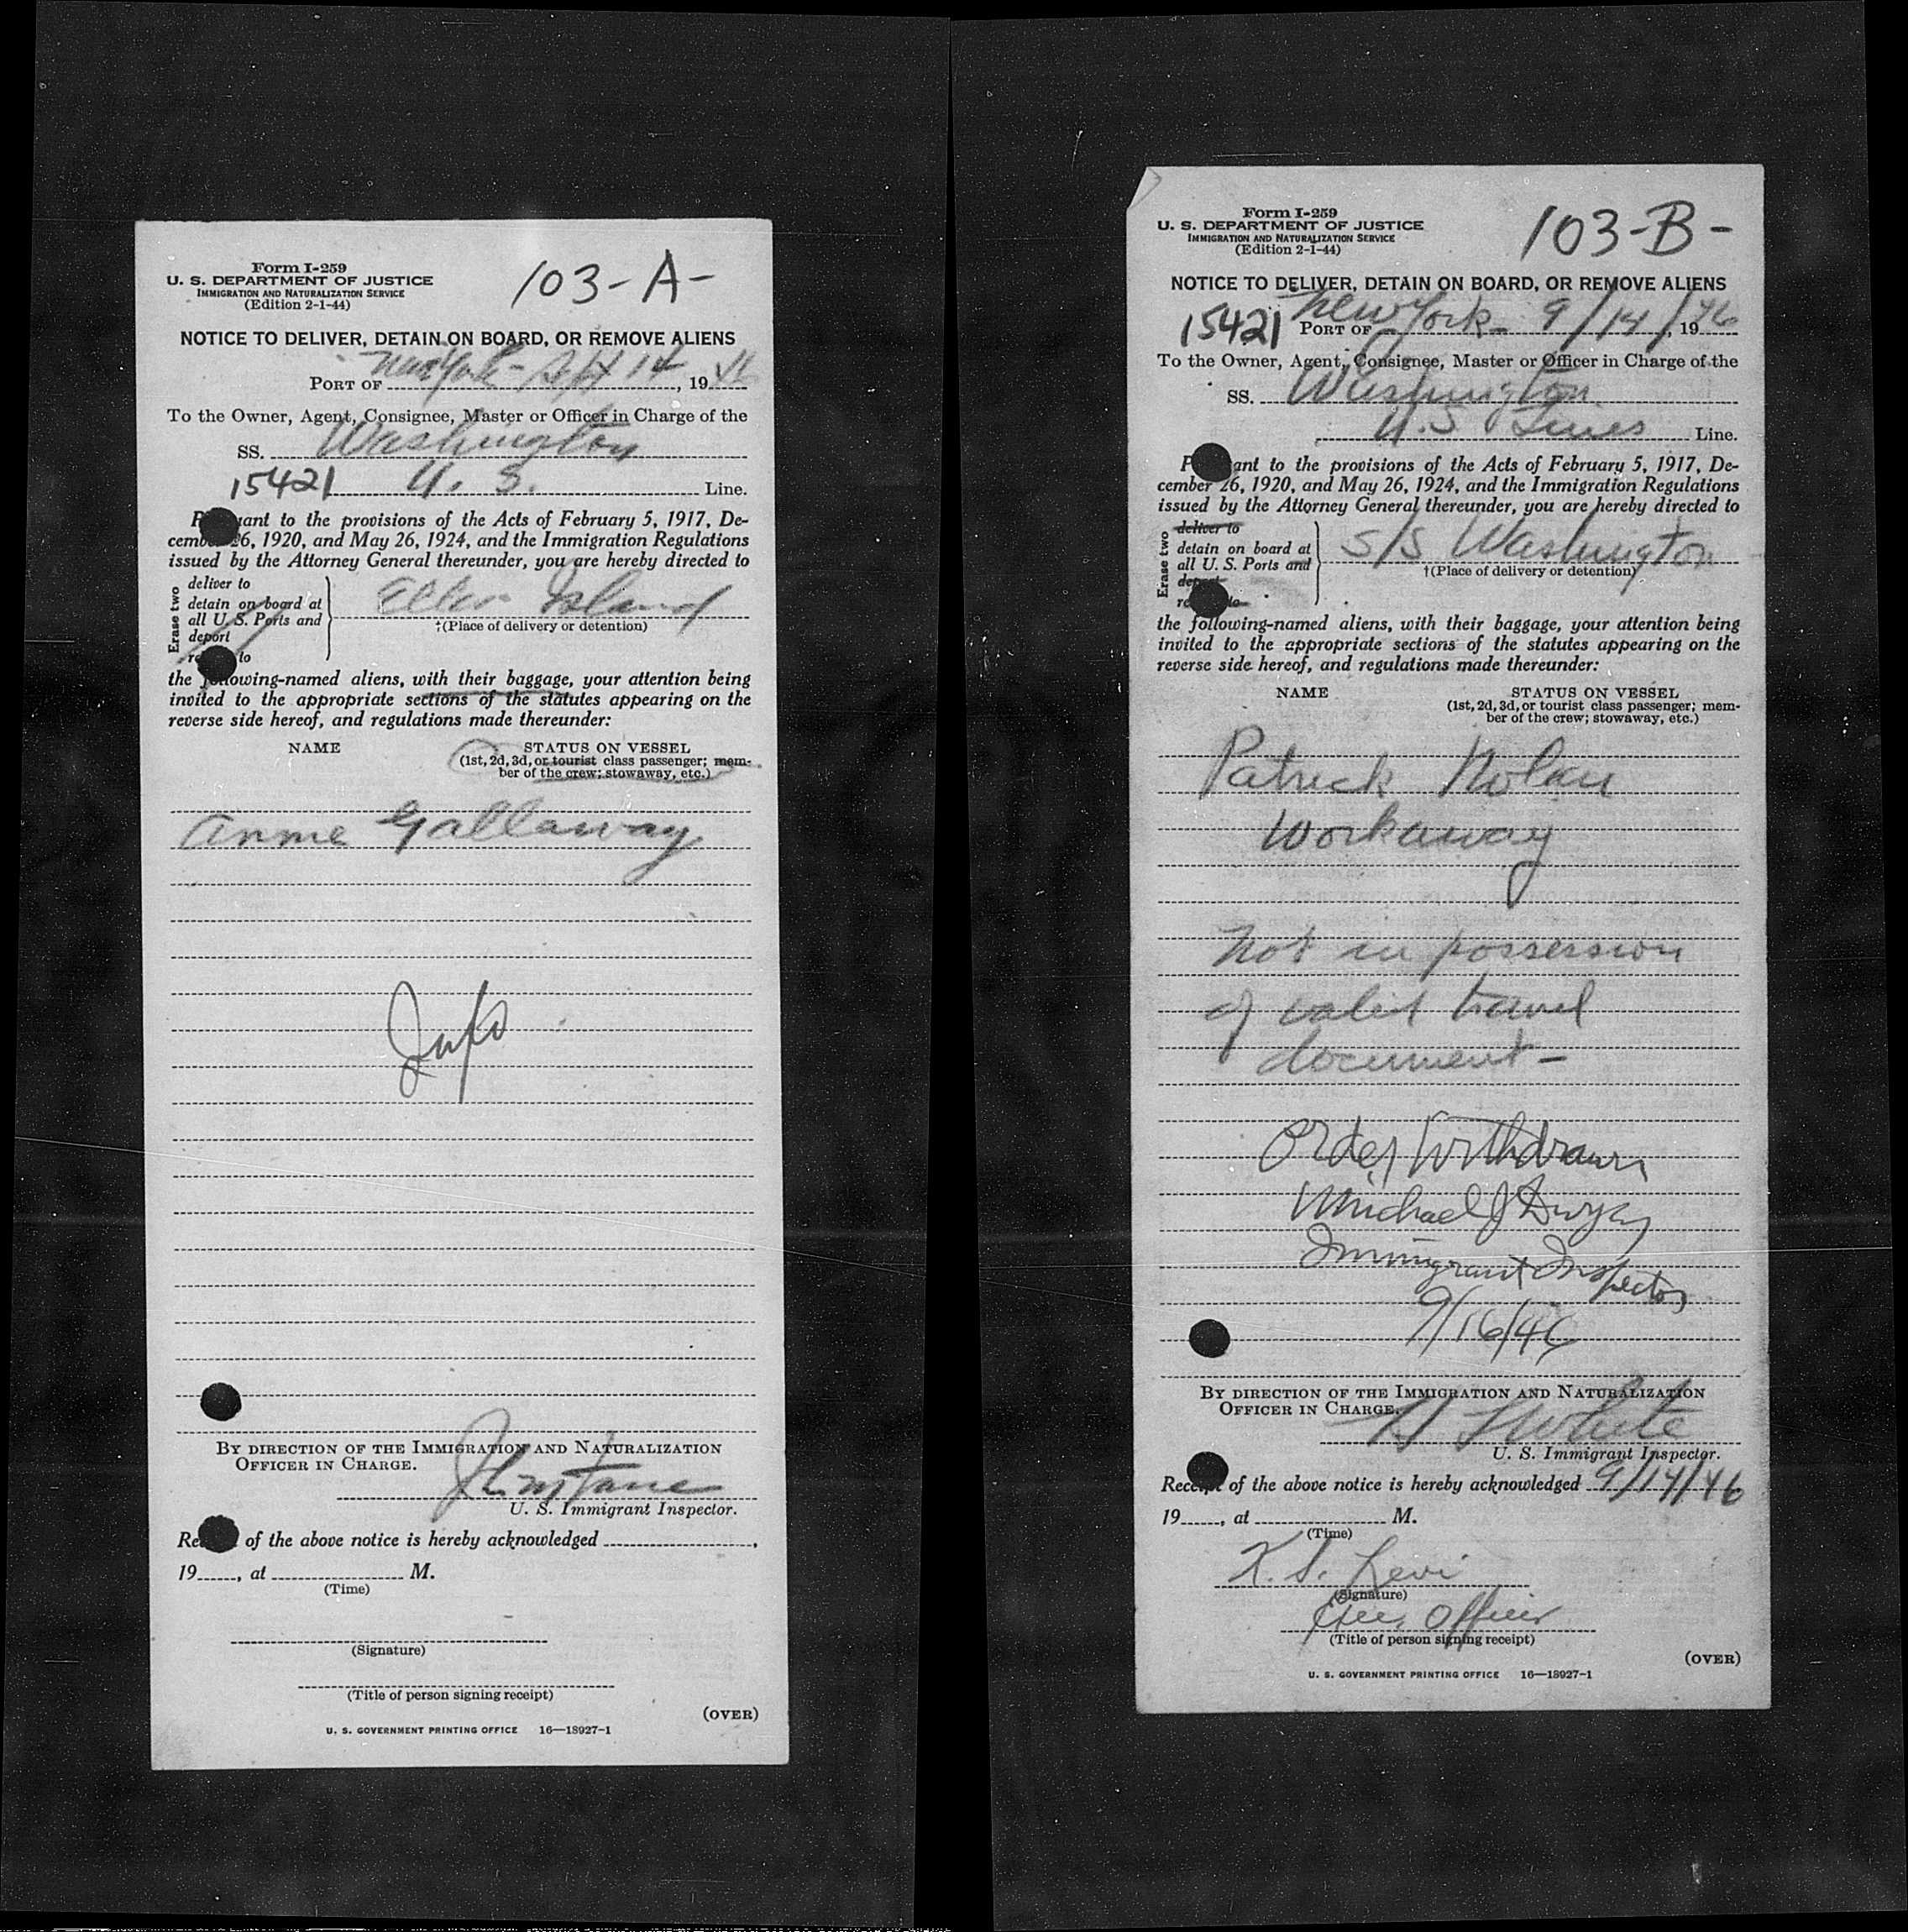 Form I-259
U. S. DEPARTMENT OF JUSTICE
IMMIGRATION AND NATURALIZATION SERVICE
(Edition 2-1-44)
103-A-
NOTICE TO DELIVER, DETAIN ON BOARD, OR REMOVE ALIENS
PORT OF New York - Sept 14, 1946
To the Owner, Agent, Consignee, Master or Officer in Charge of the
SS. Washington
15421 U. S. Line.
uant to the provisions of the Acts of February 5, 1917, De-
cember 26, 1920, and May 26, 1924, and the Immigration Regulations
issued by the Attorney General thereunder, you are hereby directed to
Erase two
deliver to
detain on board at
all U. S. Ports and
deport
to
Ellis Island
†(Place of delivery or detention)
the following-named aliens, with their baggage, your attention being
invited to the appropriate sections of the statutes appearing on the
reverse side hereof, and regulations made thereunder:
NAME STATUS ON VESSEL
(1st, 2d, 3d, or tourist class passenger; mem-
ber of the crew; stowaway, etc.)
Anne Gallaway
Info
BY DIRECTION OF THE IMMIGRATION AND NATURALIZATION
OFFICER IN CHARGE.
U. S. Immigrant Inspector.
of the above notice is hereby acknowledged
19, at M.
(Time)
(Signature)
(Title of person signing receipt)
(OVER)
U. S. GOVERNMENT PRINTING OFFICE 16—18927-1
Form I-259
U. S. DEPARTMENT OF JUSTICE
IMMIGRATION AND NATURALIZATION SERVICE
(Edition 2-1-44)
103-B-
NOTICE TO DELIVER, DETAIN ON BOARD, OR REMOVE ALIENS
15421 PORT OF New York - 9/14/, 1946
To the Owner, Agent, Consignee, Master or Officer in Charge of the
SS. Washington
U.S Lines Line.
ant to the provisions of the Acts of February 5, 1917, De-
cember 26, 1920, and May 26, 1924, and the Immigration Regulations
issued by the Attorney General thereunder, you are hereby directed to
Erase two
deliver to
detain on board at
all U. S. Ports and
S/S Washington
†(Place of delivery or detention)
the following-named aliens, with their baggage, your attention being
invited to the appropriate sections of the statutes appearing on the
reverse side hereof, and regulations made thereunder:
NAME STATUS ON VESSEL
(1st, 2d, 3d, or tourist class passenger; mem-
ber of the crew; stowaway, etc.)
Patrick Nolan
Workaway
Not in possession
of valid travel
document -
Order Withdrawn
Michael J Dwyer
Immigrant Inspector
9/16/46
BY DIRECTION OF THE IMMIGRATION AND NATURALIZATION
OFFICER IN CHARGE.
White
U. S. Immigrant Inspector.
Receipt of the above notice is hereby acknowledged 9/14/46
19, at M.
(Time)
K. S. Levi
(Signature)
Officer
(Title of person signing receipt)
(OVER)
U. S. GOVERNMENT PRINTING OFFICE 16—18927-1